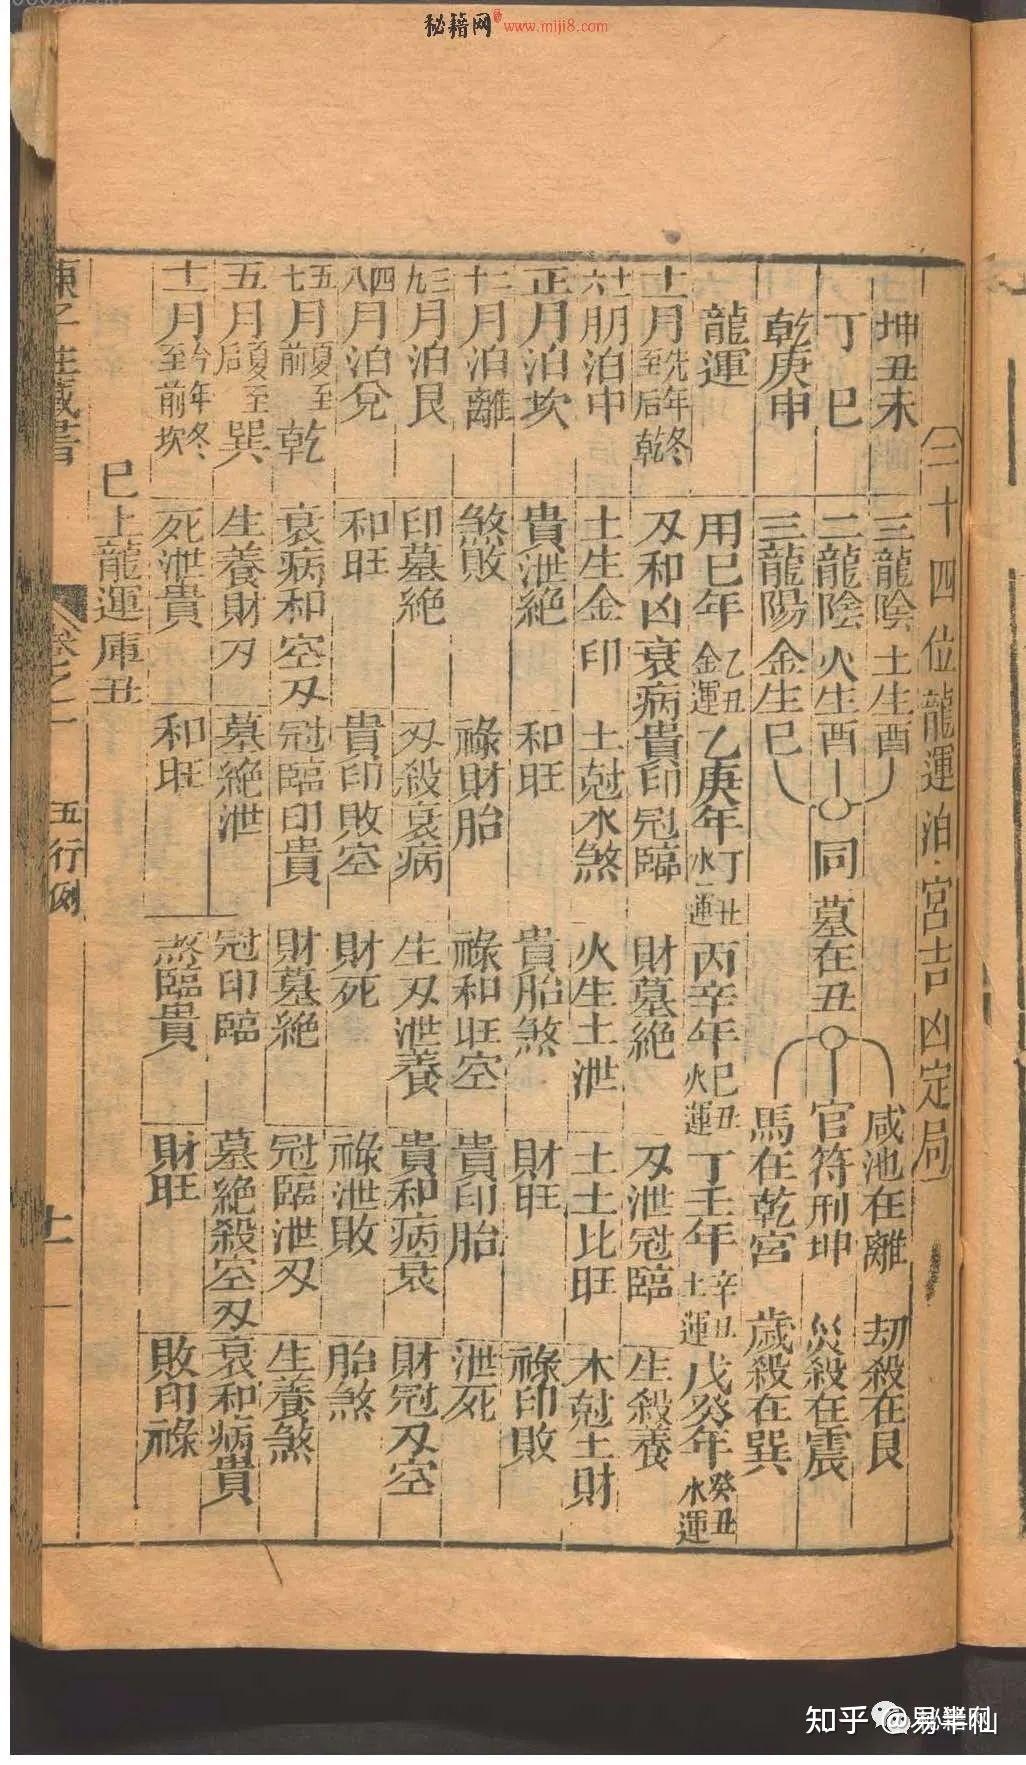 秘籍网 www.miji8.com
二十四位龍運泊宮吉凶定局
坤丑未 三龍陰土生酉 咸池在離 劫殺在艮
丁巳 二龍陰火生酉 同墓在丑 官符刑坤 災殺在震
乾庚申 三龍陽金生巳 馬在乾宮 歲殺在巽
龍運 用巳年 乙丑金運 乙庚年 丁丑水運 丙辛年 巳丑火運 丁壬年 辛丑土運 戊癸年 癸丑水運
十一月先年冬至后乾 刃和凶衰病貴印冠臨 財墓絶 刃泄冠臨 生殺養
十六月泊中 土生金印 土尅水煞 火生土泄 土土比旺 木尅土財
正月泊坎 貴泄絶 和旺 貴胎煞 財旺 祿印敗
二十月泊離 煞敗 祿財胎 祿和旺空 貴印胎 泄死
三九月泊艮 印墓絶 刃殺衰病 生刃泄養 貴和病衰 財冠刃空
四八月泊兌 和旺 貴印敗空 財死 祿泄敗 胎煞
五七月夏至前乾 衰病和空刃 冠臨印貴 財墓絶 冠臨泄刃 生養煞
五月夏至后巽 生養財刃 墓絶泄 冠印臨 墓絶殺空刃 衰和病貴
十一月今年冬至前坎 死泄貴 和旺 煞臨貴 財旺 敗印祿
巳上龍運庫丑
卷之一 五行例 十一
知乎 @易半仙